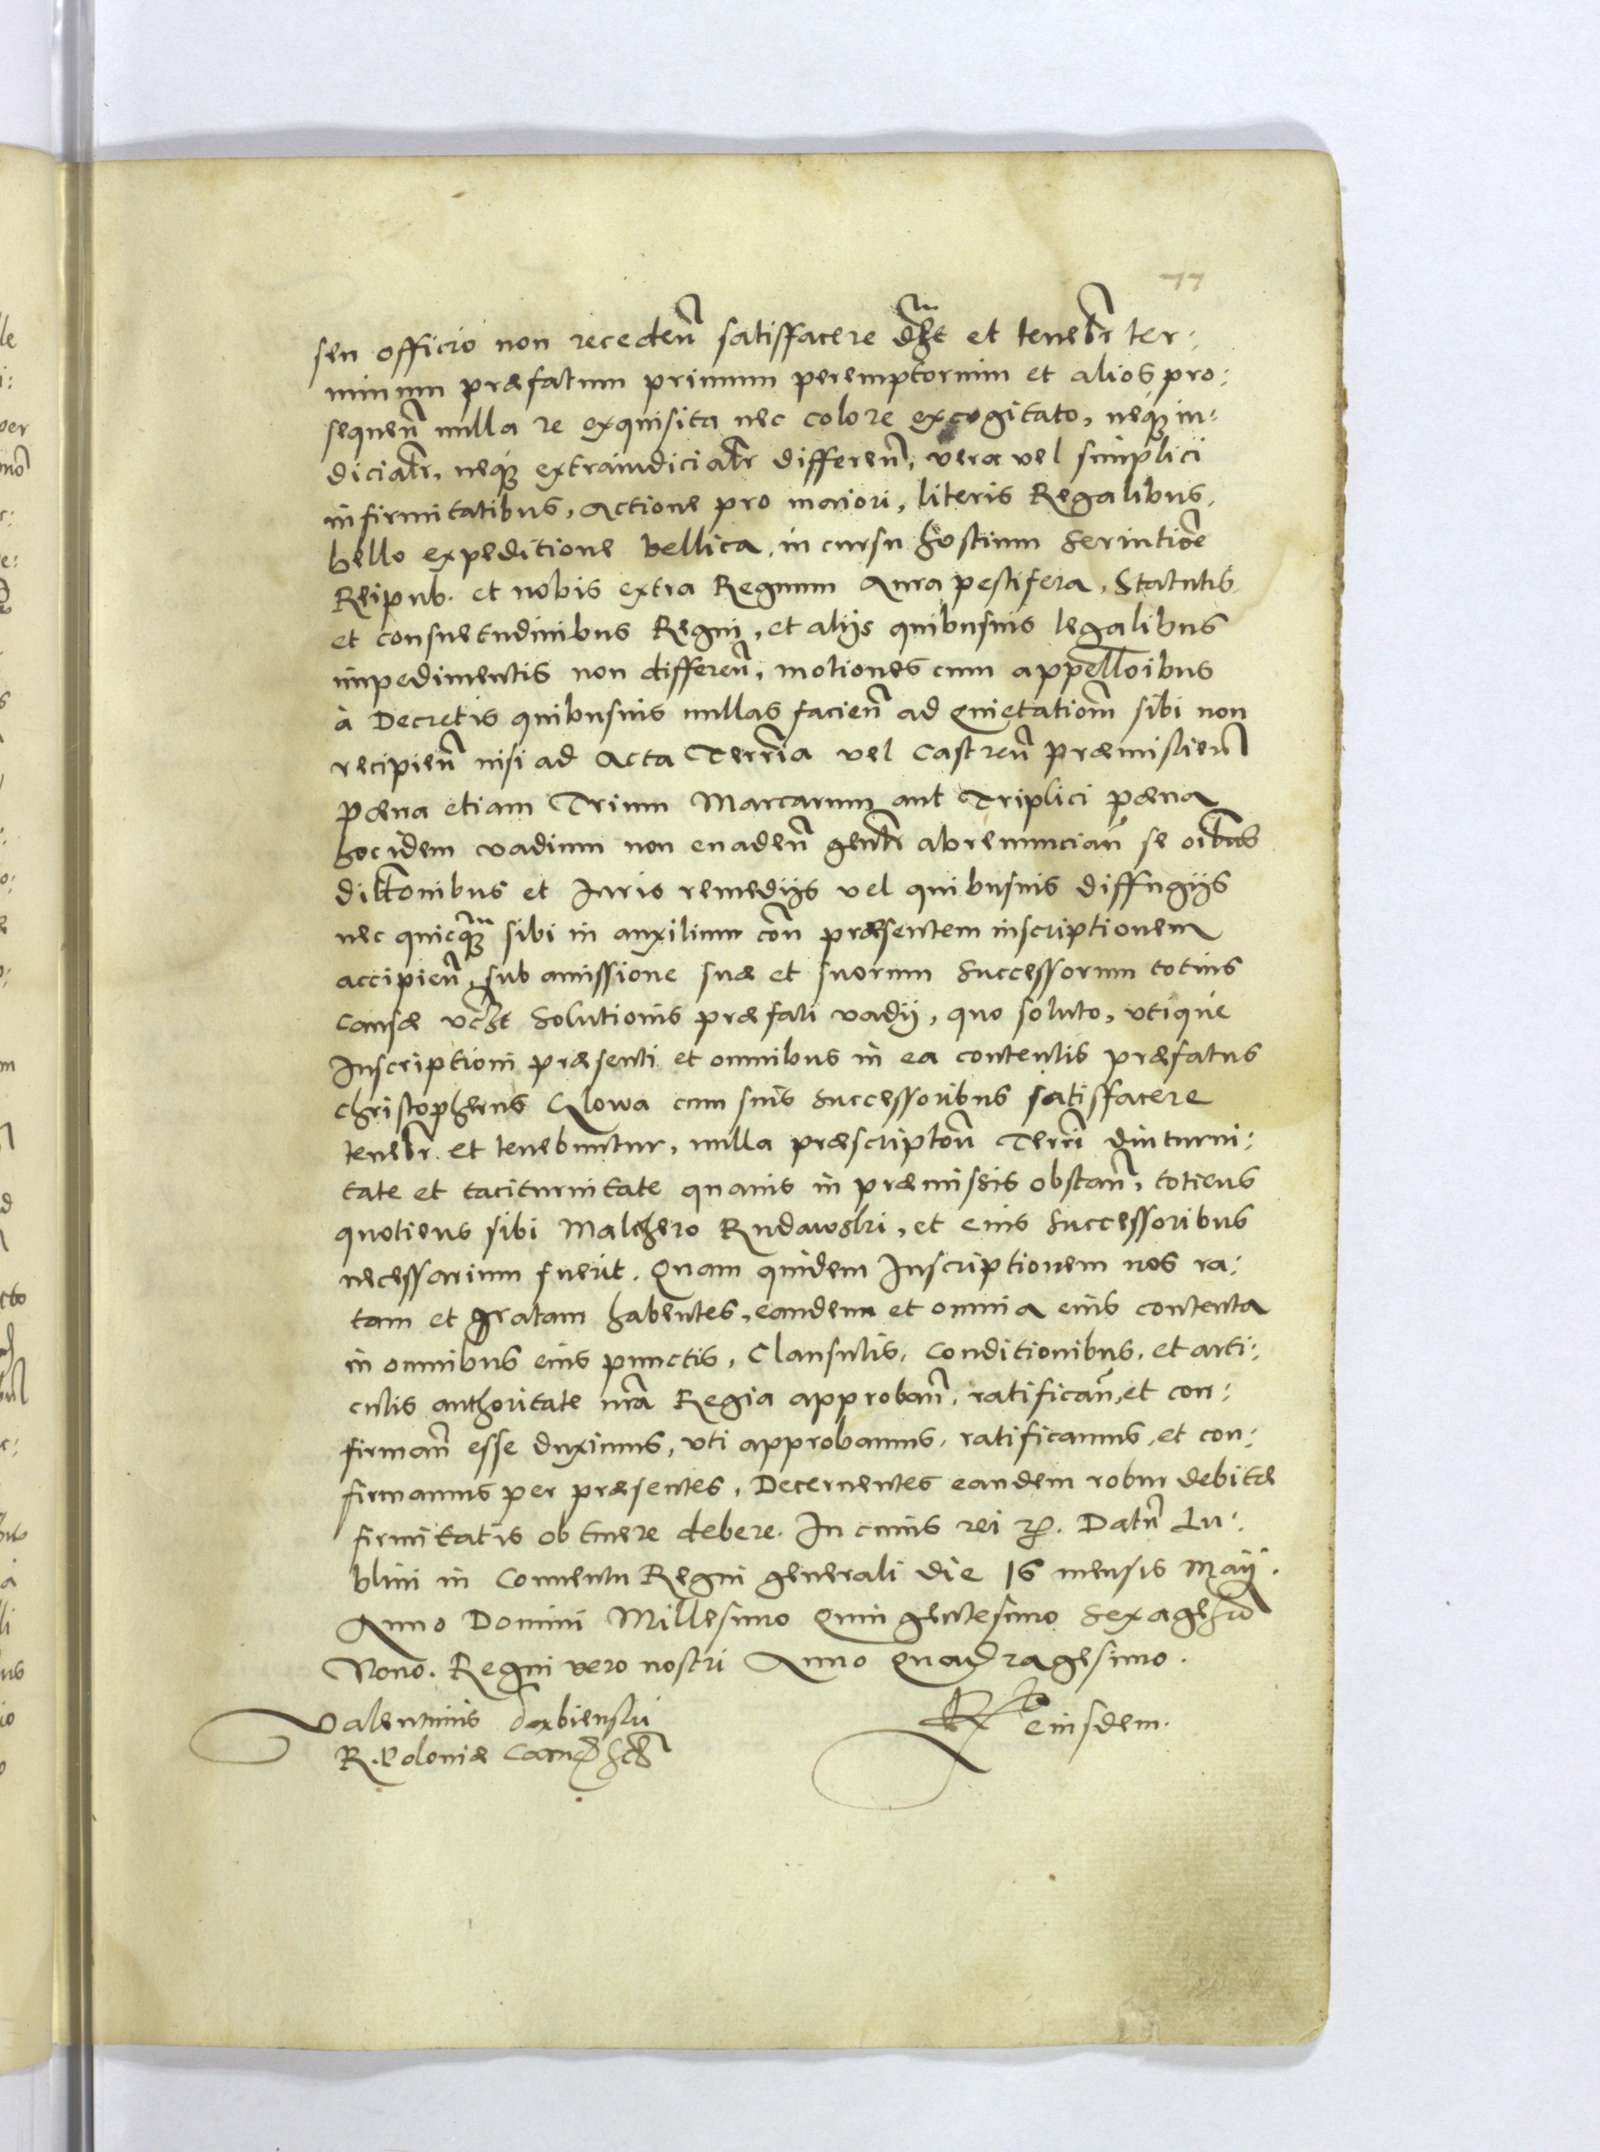 77
seu officio non receden satisfacere debet et tenebr ter:
minum præfatum primum peremptorium et alios pro:
sequen nulla re exquisita nec colore excogitato, neq iu:
diciatr, neq extraiudicialr differen, vera vel simplici
infirmitatibus, actione pro maiori, literis Regalibus,
bello expeditione bellica, in cursu hostium Seruitioe
Reipub. et nobis extra Regnum Aura pestifera, Statutis
et consuetudinibus Regni, et alijs quibusuis legalibus
impedimentis non differen, motiones cum appelloibus
à Decretis quibusuis nullas facien ad Quietationm sibi non
recipien nisi ad Acta Terria vel Castren præmissien
Pæna etiam Trium Marcarum aut Triplici pæna
hoc idem vadium non euaden genlr abrenuncian se oibus
diltonibus et Iuris remedijs vel quibusuis diffugijs
nec quicqm sibi in auxilium con præsentem inscriptionem
accipien, sub amissione suæ et suorum Successorum totius
causæ vczt Solutionis præfati vadij, quo soluto, vtique
Inscriptioni præsenti et omnibus in ea contentis præfatus
Christopherus Glowa cum suis Successoribus satisfacere
tenebr et tenebuntur, nulla præscripton Terri diuturni:
tate et taciturnitate quauis in præmissis obstan, totiens
quotiens sibi Malchero Rudawski, et eius Successoribus
necessarium fuerit. Quam quidem Inscriptionem nos ra:
tam et gratam habentes, eandem et omnia eius contenta
in omnibus eius punctis, Clausulis, Conditionibus, et arti:
culis authoritate nra Regia approban, ratifican, et con:
firman esse duximus, vti approbamus, ratificamus, et con:
firmamus per præsentes, Decernentes eandem robur debitæ
firmitatis obtinere debere. In cuius rei Datn Lu:
blini in Conuentu Regni generali die 16 mensis Maij.
Anno Domini Millesimo Quingentesimo Sexagesio
Nono. Regni vero nostri Anno Quadragesimo.
Valentinus Dembienski
R. Poloniæ Canc
eiusdem.